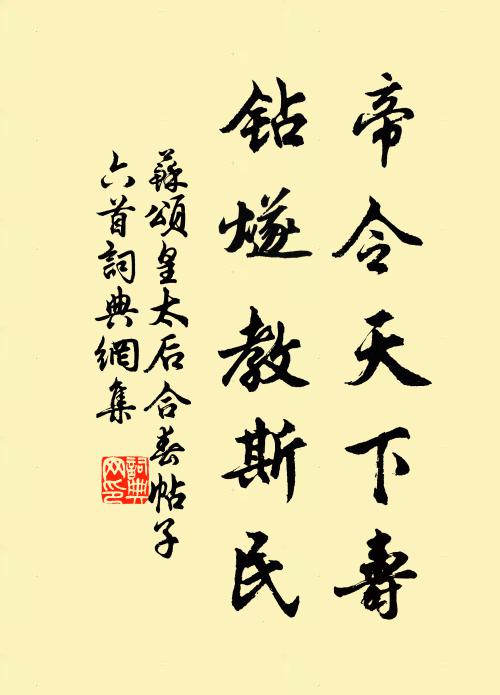 帝令天下壽
钻燧教斯民
蘇頌皇太后合春帖子
六首詞典網集
詞典
网印